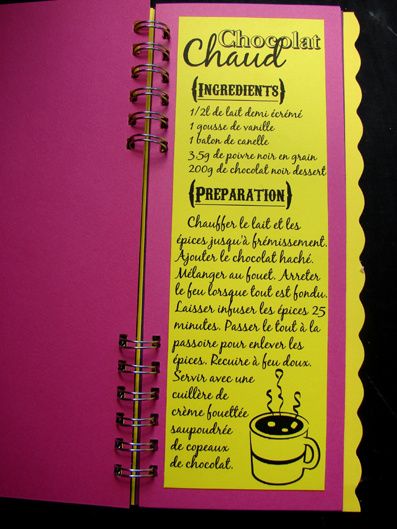 Chocolat
Chaud
{INGREDIENTS}
1/2l de lait demi écrémé
1 gousse de vanille
1 baton de canelle
35g de poivre noir en grain
200g de chocolat noir dessert
{PREPARATION}
Chauffer le lait et les
épices jusqu'à frémissement.
Ajouter le chocolat haché.
Mélanger au fouet. Arreter
le feu lorsque tout est fondu.
Laisser infuser les épices 25
minutes. Passer le tout à la
passoire pour enlever les
épices. Recuire à feu doux.
Servir avec une
cuillère de
crème fouettée
saupoudrée
de copeaux
de chocolat.